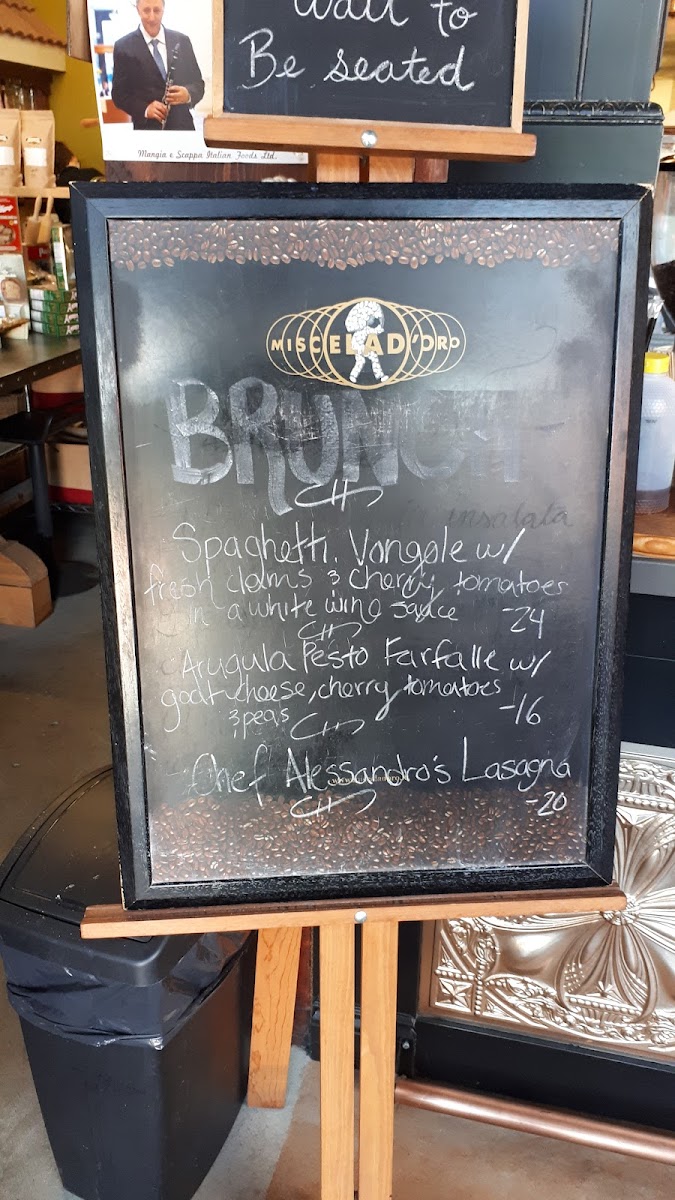 Wait to
Be seated
Mangia e Scappa Italian Foods Ltd.
MISCELA D'ORO
BRUNCH
insalata
Spaghetti Vongole w/
fresh clams & cherry tomatoes
in a white wine sauce -24
Arugula Pesto Farfalle w/
goat cheese, cherry tomatoes
& peas -16
Chef Alessandro's Lasagna
-20